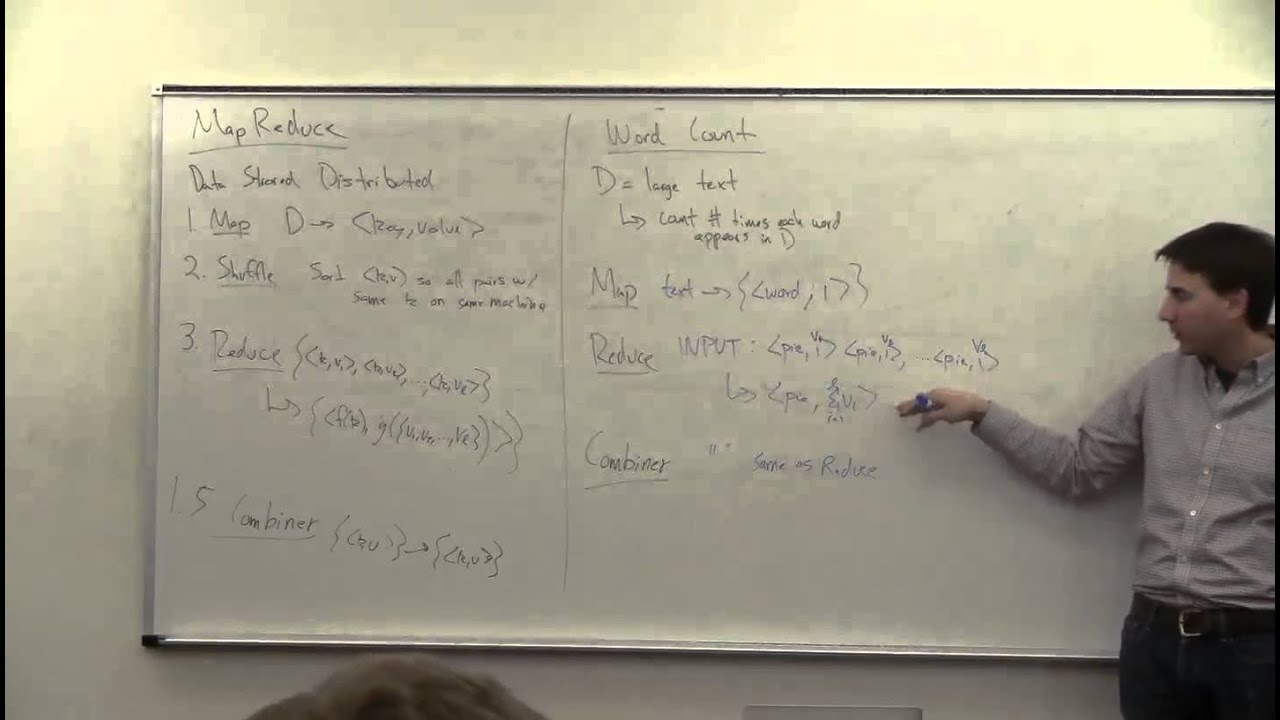 MapReduce
Data Stored Distributed
1. Map D → <key, value>
2. Shuffle Sort <k,v> so all pairs w/
same k on same machine
3. Reduce {<k,v₁>, <k,v₂>, ..., <k,vₑ>}
↳ {<f(k), g({v₁,v₂,...,vₑ})>}
1.5 Combiner {<k,v>} → {<k,v>}
Word Count
D = large text
↳ count # times each word
appears in D
Map text → {<word, 1>}
Reduce INPUT: <pie, 1> <pie, 1>, ... <pie, 1>
↳ <pie, Σ vᵢ>
Combiner " " same as Reduce